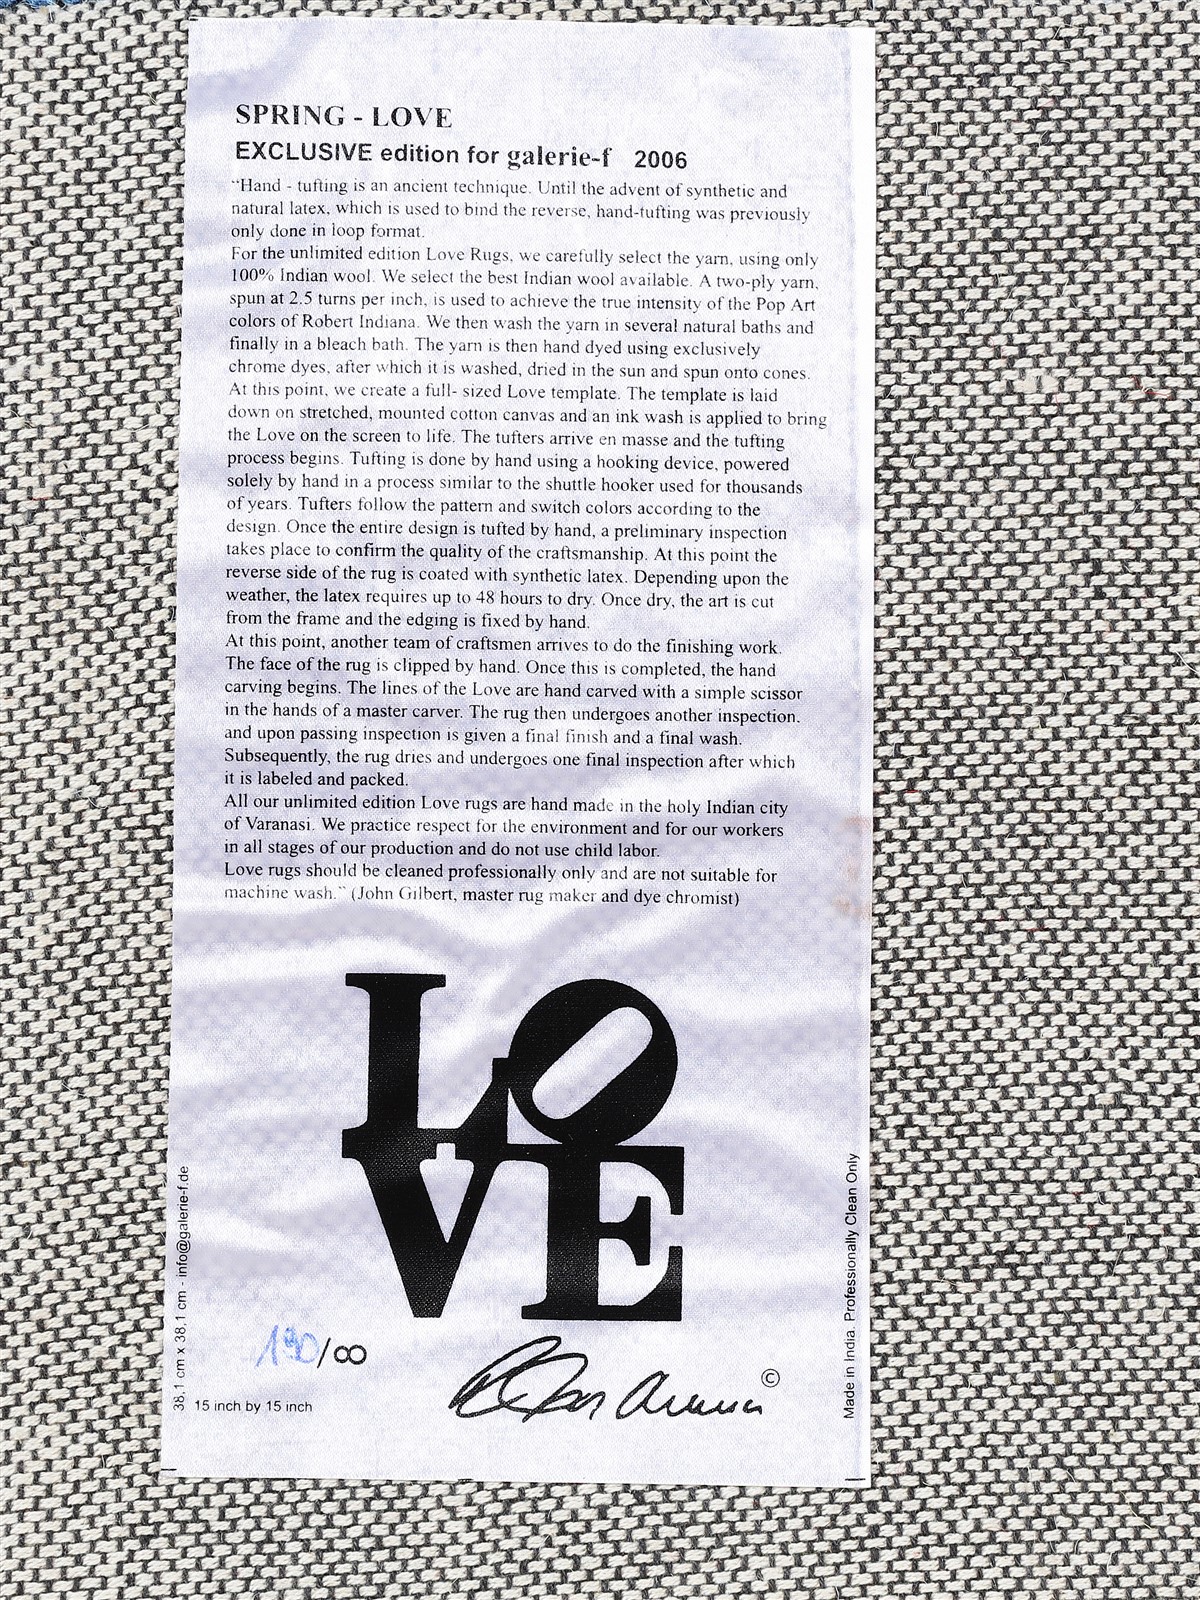 SPRING - LOVE
EXCLUSIVE edition for galerie-f 2006
"Hand - tufting is an ancient technique. Until the advent of synthetic and
natural latex, which is used to bind the reverse, hand-tufting was previously
only done in loop format.
For the unlimited edition Love Rugs, we carefully select the yarn, using only
100% Indian wool. We select the best Indian wool available. A two-ply yarn,
spun at 2.5 turns per inch, is used to achieve the true intensity of the Pop Art
colors of Robert Indiana. We then wash the yarn in several natural baths and
finally in a bleach bath. The yarn is then hand dyed using exclusively
chrome dyes, after which it is washed, dried in the sun and spun onto cones.
At this point, we create a full- sized Love template. The template is laid
down on stretched, mounted cotton canvas and an ink wash is applied to bring
the Love on the screen to life. The tufters arrive en masse and the tufting
process begins. Tufting is done by hand using a hooking device, powered
solely by hand in a process similar to the shuttle hooker used for thousands
of years. Tufters follow the pattern and switch colors according to the
design. Once the entire design is tufted by hand, a preliminary inspection
takes place to confirm the quality of the craftsmanship. At this point the
reverse side of the rug is coated with synthetic latex. Depending upon the
weather, the latex requires up to 48 hours to dry. Once dry, the art is cut
from the frame and the edging is fixed by hand.
At this point, another team of craftsmen arrives to do the finishing work.
The face of the rug is clipped by hand. Once this is completed, the hand
carving begins. The lines of the Love are hand carved with a simple scissor
in the hands of a master carver. The rug then undergoes another inspection.
and upon passing inspection is given a final finish and a final wash.
Subsequently, the rug dries and undergoes one final inspection after which
it is labeled and packed.
All our unlimited edition Love rugs are hand made in the holy Indian city
of Varanasi. We practice respect for the environment and for our workers
in all stages of our production and do not use child labor.
Love rugs should be cleaned professionally only and are not suitable for
machine wash." (John Gilbert, master rug maker and dye chromist)
LO
VE
190/∞
©
15 inch by 15 inch
38,1 cm x 38,1 cm - info@galerie-f.de
Made in India. Professionally Clean Only